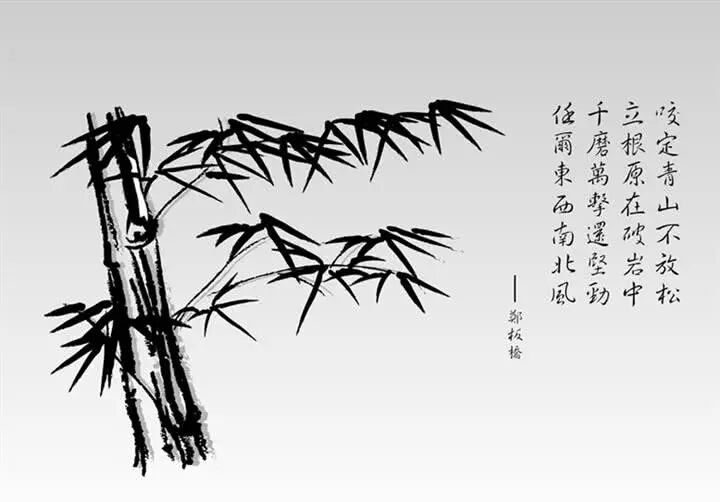 咬定青山不放松
立根原在破岩中
千磨萬擊還堅勁
任爾東西南北風
——鄭板橋